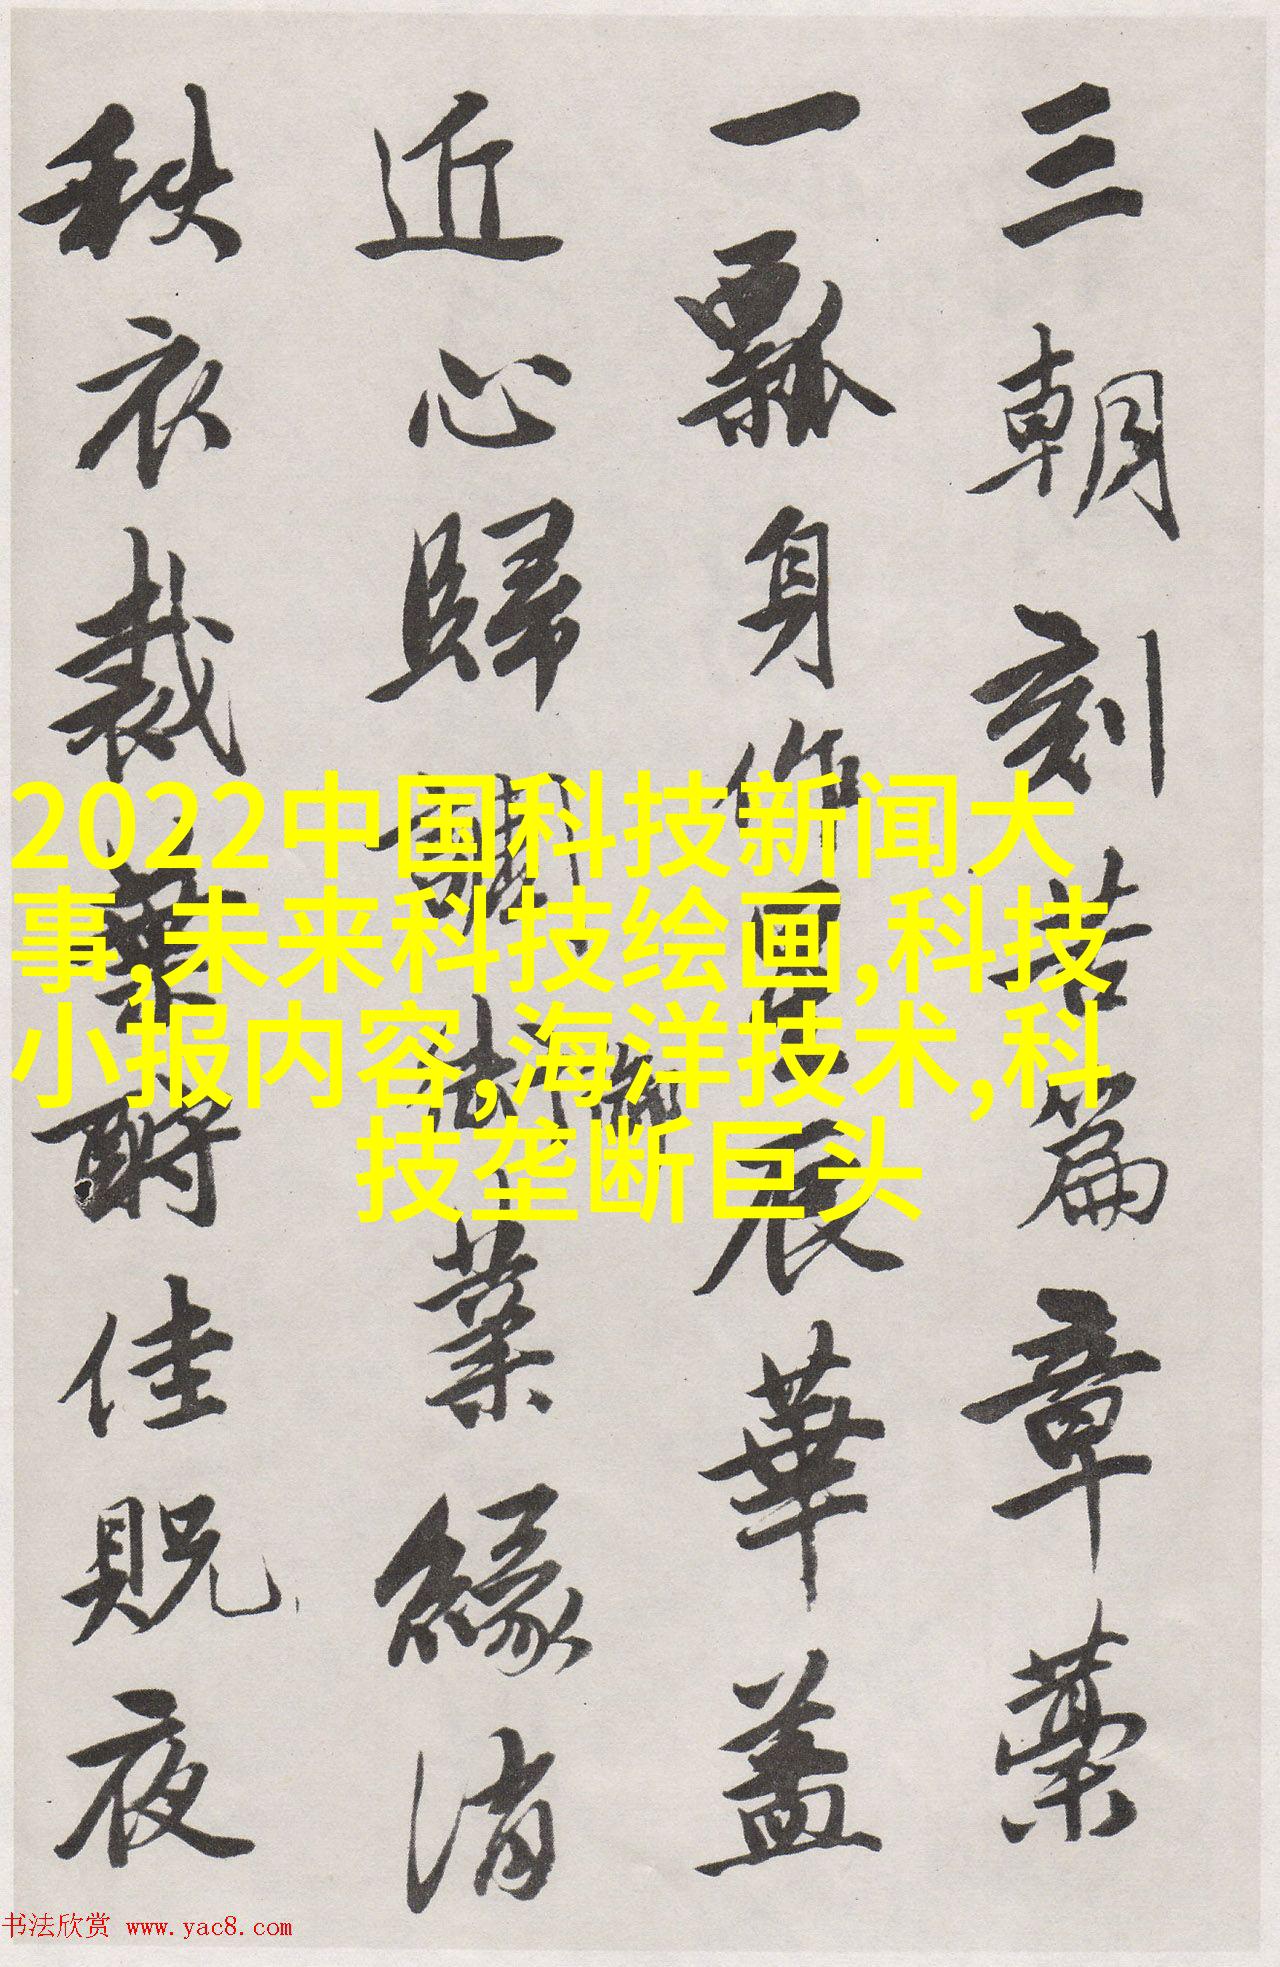 三朝刻苦篇章藁
一瓢身作展華蓋
近心歸業緣消
秩衣裁藥酧佳貺夜
2022中国科技新闻大
事,未来科技绘画,科技
小报内容,海洋技术,科
技垄断巨头
书法欣赏 www.yac8.com